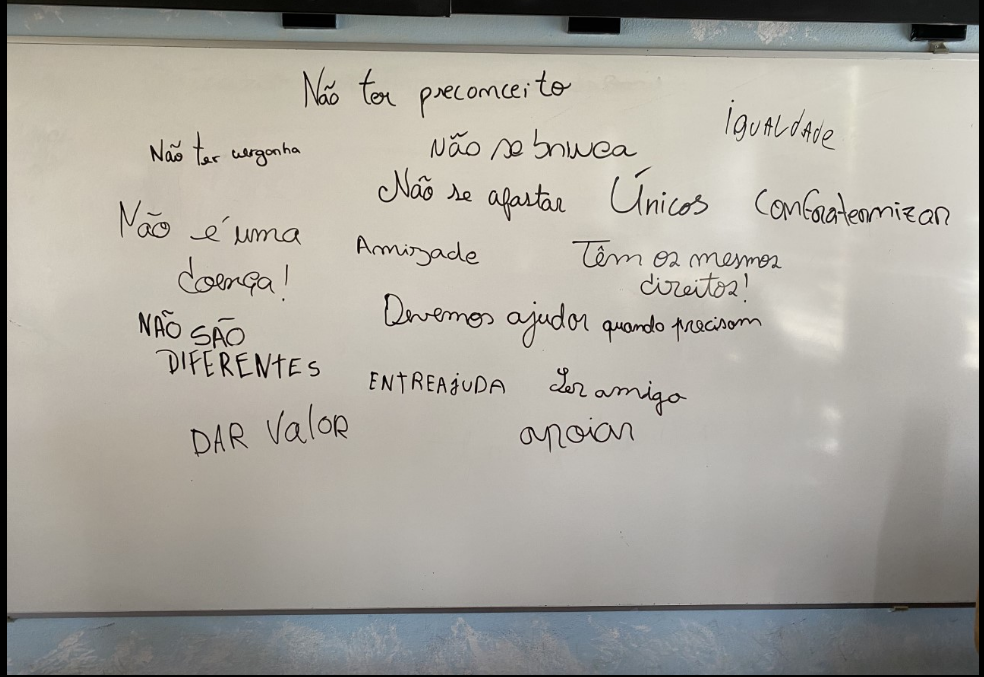 Não ter preconceito
igualdade
Não ter vergonha
Não se brinca
Não se afastar
Únicos
Confraternizar
Não é uma
doença!
Amizade
Têm os mesmos
direitos!
NÃO SÃO
DIFERENTES
Devemos ajudar quando precisam
ENTREAJUDA
Ser amigo
DAR Valor
apoiar